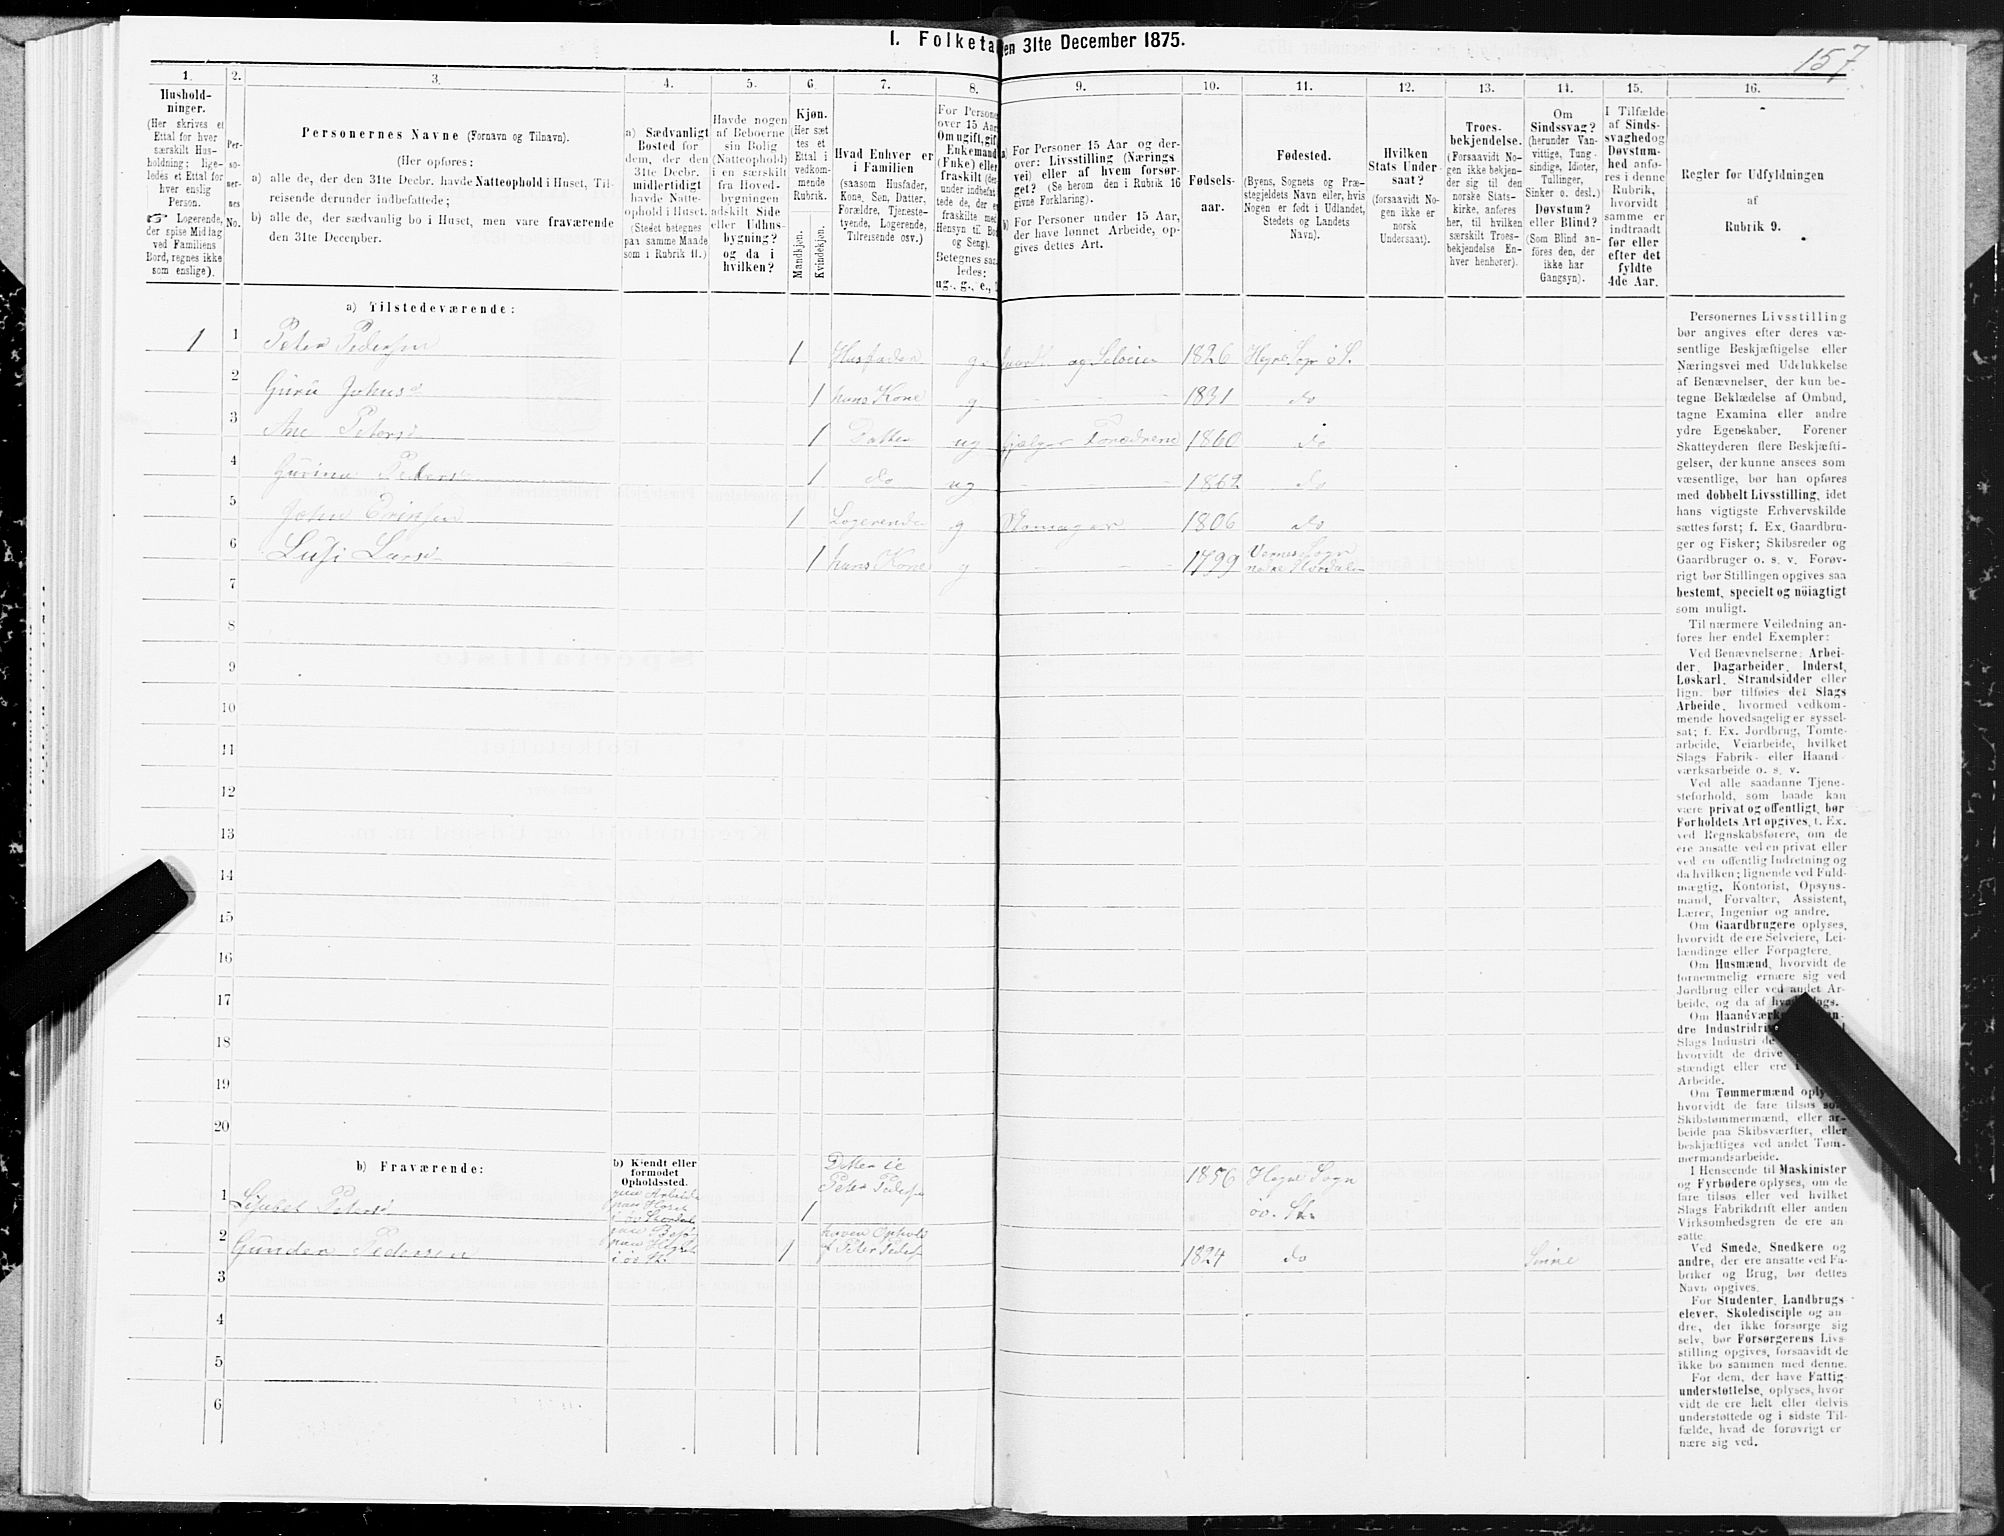 I. Folketa en 31te December 1875.
157
1.
2.
3.
4.
5.
6.
7.
8.
9.
10.
11.
12.
13.
14.
15.
16.
Hushold-
ninger.
(Her skrives et
Ettal for hver
særskilt Hus-
holdning; lige-
ledes et Ettal for
hver enslig
Person.
☞ Logerende,
der spise Middag
ved Familiens
Bord, regnes ikke
som enslige).
Per-
so-
ner-
nes
No.
Personernes Navne (Fornavn og Tilnavn).
(Her opføres:
a) alle de, der den 31te Decbr. havde Natteophold i Huset, Til-
reisende derunder indbefattede;
b) alle de, der sædvanlig bo i Huset, men vare fraværende
den 31te December.
a) Sædvanligt
Bosted for
dem, der den
31te Decbr.
midlertidigt
havde Natte-
ophold i Huset.
(Stedet betegnes
paa samme Maade
som i Rubrik 11.)
Havde nogen
af Beboerne
sin Bolig
(Natteophold)
i en særskilt
fra Hoved-
bygningen
adskilt Side
eller Udhus-
bygning?
og da i
hvilken?
Kjøn.
(Her sæt
tes et
Ettal i
vedkom-
mende
Rubrik.
Mandkjøn.
Kvindekjøn.
Hvad Enhver er
i Familien
(saasom Husfader,
Kone, Søn, Datter,
Forældre, Tjeneste-
tyende, Logerende,
Tilreisende osv.)
For Persone
over 15 Aar
Om ugift, gif
Enkemand
(Enke) eller
fraskilt (der
under indbefat
tede de, der er
fraskilte med
Hensyn til Bo
og Seng).
Betegnes saa
ledes:
ug., g., e.,
a) For Personer 15 Aar og der-
over: Livsstilling (Nærings
vei) eller af hvem forsør-
get? (Se herom den i Rubrik 16
givne Forklaring).
b) For Personer under 15 Aar,
der have lønnet Arbeide, op-
gives dettes Art.
Fødsels-
aar.
Fødested.
(Byens, Sognets og Præ-
stegjeldets Navn eller, hvis
Nogen er født i Udlandet,
Stedets og Landets
Navn).
Hvilken
Stats Under
saat?
(forsaavidt No-
gen ikke er
norsk
Undersaat).
Troes-
bekjendelse.
(Forsaavidt No-
gen ikke bekjen-
der sig til den
norske Stats-
kirke, anføres
her, til hvilken
særskilt Troes-
bekjendelse En-
hver henhører).
Om
Sindssvag?
(herunder Van-
vittige, Tung-
sindige, Idioter,
Tullinger,
Sinker o. desl.)
Døvstum?
eller Blind?
(Som Blind an-
føres den, der
ikke har
Gangsyn).
I Tilfælde
af Sinds-
svaghed og
Døvstum-
hed anfø-
res i denne
Rubrik,
hvorvidt
samme er
indtraadt
før eller
efter det
fyldte
4de Aar.
Regler for Udfyldningen
af
Rubrik 9.
a) Tilstedeværende:
1 1 Peter Pedersen 1 Husfader g og Selveier 1826 Hegre Sogn i S.
2 Guru Johns 1 hans Kone g 1831 do
3 Ane Peters 1 Datter ug hjelper Forældrene 1860 do
4 Gurine Peders 1 do ug 1862 do
5 John 1 Logerende g Skomager 1806 do
6 Lusi Lars 1 hans Kone g 1799 Sogn
nedre
7
8
9
10
11
12
13
14
15
16
17
18
19
20
b) Fraværende:
b) Kjendt eller
formodet
Opholdssted.
1 Lisabet Peters paa Arbeide
1 Peter Peders 1856 Hegre Sogn
øv. St
2 Gunder Pedersen 1 Ophold Peter Peders 1824 do Sinne
3
4
5
6
Personernes Livsstilling
bør angives efter deres væ-
sentlige Beskjæftigelse eller
Næringsvei med Udelukkelse
af Benævnelser, der kun be-
tegne Beklædelse af Ombud,
tagne Examina eller andre
ydre Egenskaber. Forener
Skatteyderen flere Beskjæfti-
gelser, der kunne ansees som
væsentlige, bør han opføres
med dobbelt Livsstilling, idet
hans vigtigste Erhvervskilde
sættes først; f. Ex. Gaardbru-
ger og Fisker; Skibsreder og
Gaardbruger o. s. v. Forøv-
rigt bør Stillingen opgives saa
bestemt, specielt og nöiagtigt
som muligt.
Til nærmere Veiledning an-
føres her endel Exempler:
Ved Benævnelserne: Arbei-
der, Dagarbeider, Inderst,
Løskarl, Strandsidder eller
lign. bør tilføies det Slags
Arbeide, hvormed vedkom-
mende hovedsagelig er syssel-
sat; f. Ex. Jordbrug, Tomte-
arbeide, Veiarbeide, hvilket
Slags Fabrik- eller Haand
værksarbeide o. s. v.
Ved alle saadanne Tjene-
steforhold, som baade kan
være privat og offentligt, bør
Forholdets Art opgives, f. Ex.
ved Regnskabsførere, om de
ere ansatte ved en privat eller
ved en offentlig Indretning og
da hvilken; lignende ved Fuld-
mægtig, Kontorist, Opsyns-
mand, Forvalter, Assistent,
Lærer, Ingeniør og andre.
Om Gaardbrugere oplyses,
hvorvidt de ere Selveiere, Lei-
lændinge eller Forpagtere.
Om Husmænd, hvorvidt de
fornemmelig ernære sig ved
Jordbrug eller ved andet Ar-
beide, og da af hvad Slags.
Om Haandværke an-
dre Industridri
Slags Industri de
hvorvidt de drive
stændigt eller ere
Arbeide.
Om Tømmermænd oply
hvorvidt de fare tilsøs som
Skibstømmermænd, eller ar-
beide paa Skibsværfter, eller
beskjæftiges ved andet Tøm-
mermandsarbeide.
I Henseende til Maskinister
og Fyrbødere oplyses, om de
fare tilsøs eller ved hvilket
Slags Fabrikdrift eller anden
Virksomhedsgren de ere an-
satte.
Ved Smede, Snedkere og
andre, der ere ansatte ved Fa-
briker og Brug, bør dettes
Navn opgives.
For Studenter, Landbrugs
elever, Skoledisciple og an-
dre, der ikke forsørge sig
selv, bør Forsørgerens Livs-
stilling opgives, forsaavidt de
ikke bo sammen med denne.
For dem, der have Fattig-
understøttelse, oplyses, hvor
vidt de ere helt eller delvis
understøttede og i sidste Til-
fælde, hvad de forøvrigt er
nære sig ved.